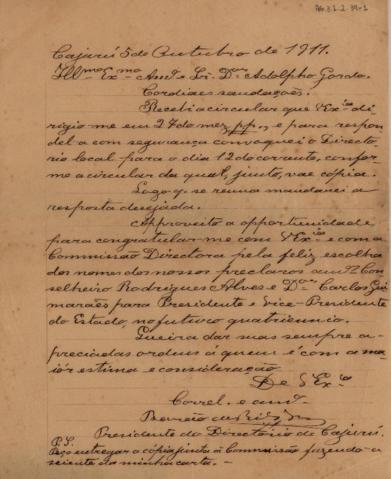 Cajurú 5 de Outubro de 1911.
Illmo Exmo Amo. e Sr. Dor Adolpho Gordo.
Cordiaes saudações.
Recebi a circular que VExcia di-
rigio-me em 27 do mez pp., e para respon
del-a com segurança convoquei o Directo
rio local para o dia 12 do corrente, confor
me a circular da qual, junto, vae cópia.
Logo q. se reuna mandarei a
resposta desejada.
Approveito a opportunidade
para congratular-me com VExcia e com a
Commissão Directora pela feliz escolha
dos nomes dos nossos preclaros amos Con
selheiro Rodrigues Alves e Dor Carlos Gui
marães para Presidente e Vice-Presidente
do Estado, no futuro quatriennio.
Queira dar suas sempre a-
preciadas ordens a quem é com a ma
iór estima e consideração
De VExcia
Correl. e amo.
Presidente do Directorio de Cajurú.
P.S.
Peço entregar a cópia junta á Commissão fazendo-a
sciente da minha carta. -